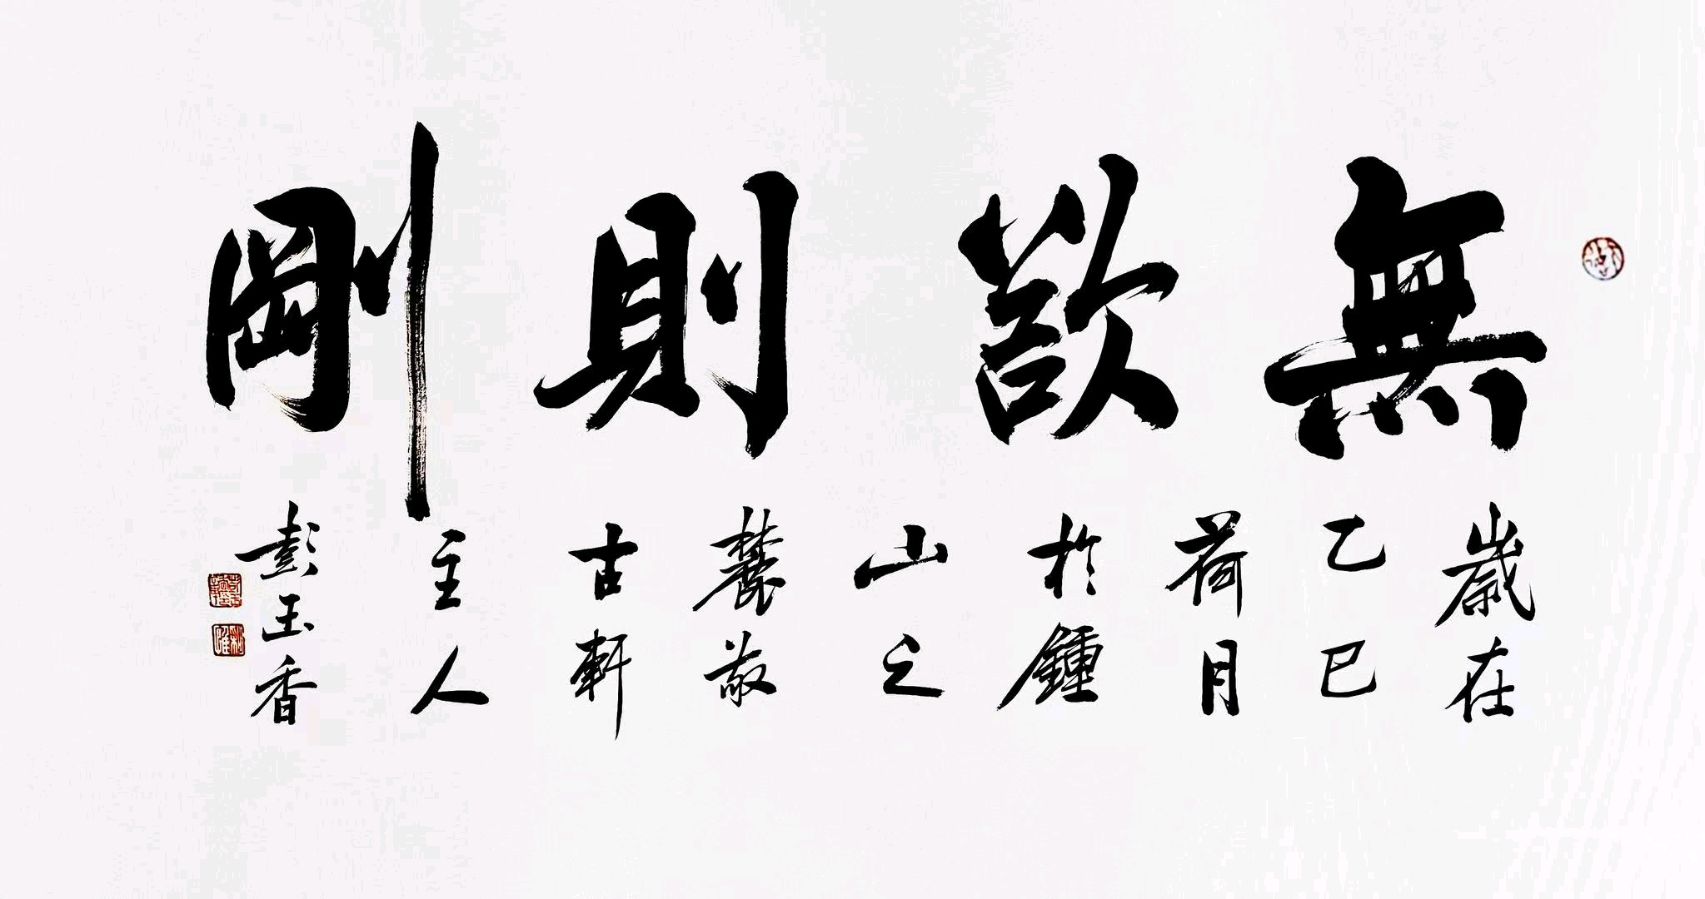 無欲則剛
歲在
乙巳
荷月
於鍾
山之
麓敬
古軒
主人
彭玉香